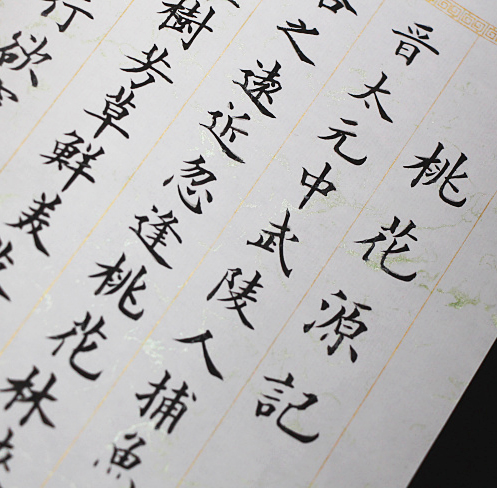 桃花源記
晉太元中武陵人捕魚
之遠近忽逢桃花林
樹芳草鮮美
行欲